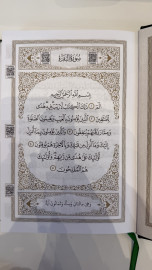 سُورَةُ البَقَرَةِ
بِسْمِ اللَّهِ الرَّحْمَٰنِ الرَّحِيمِ
الٓمٓ ١ ذَٰلِكَ ٱلْكِتَٰبُ لَا رَيْبَ ۛ فِيهِ ۛ هُدًى
لِّلْمُتَّقِينَ ٢ ٱلَّذِينَ يُؤْمِنُونَ بِٱلْغَيْبِ وَيُقِيمُونَ ٱلصَّلَوٰةَ
وَمِمَّا رَزَقْنَٰهُمْ يُنفِقُونَ ٣ وَٱلَّذِينَ يُؤْمِنُونَ بِمَآ
أُنزِلَ إِلَيْكَ وَمَآ أُنزِلَ مِن قَبْلِكَ وَبِٱلْءَاخِرَةِ هُمْ يُوقِنُونَ ٤
أُو۟لَٰٓئِكَ عَلَىٰ هُدًى مِّن رَّبِّهِمْ ۖ وَأُو۟لَٰٓئِكَ
هُمُ ٱلْمُفْلِحُونَ ٥